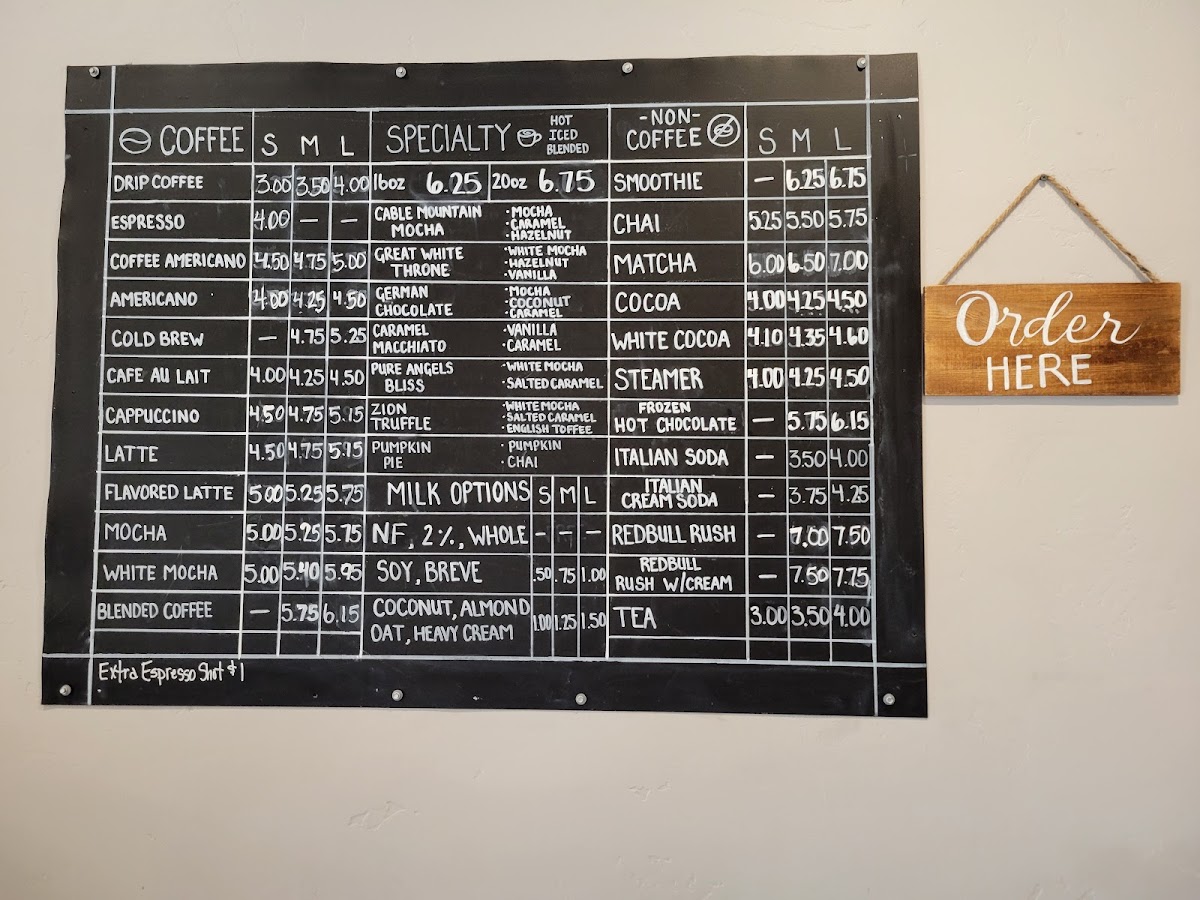 COFFEE S M L
DRIP COFFEE 3.00 3.50 4.00
ESPRESSO 4.00 — —
COFFEE AMERICANO 4.50 4.75 5.00
AMERICANO 4.00 4.25 4.50
COLD BREW — 4.75 5.25
CAFE AU LAIT 4.00 4.25 4.50
CAPPUCCINO 4.50 4.75 5.15
LATTE 4.50 4.75 5.15
FLAVORED LATTE 5.00 5.25 5.75
MOCHA 5.00 5.25 5.75
WHITE MOCHA 5.00 5.40 5.95
BLENDED COFFEE — 5.75 6.15
Extra Espresso Shot $1
SPECIALTY
HOT
ICED
BLENDED
16oz 6.25 20oz 6.75
CABLE MOUNTAIN
MOCHA
· MOCHA
· CARAMEL
· HAZELNUT
GREAT WHITE
THRONE
· WHITE MOCHA
· HAZELNUT
· VANILLA
GERMAN
CHOCOLATE
· MOCHA
· COCONUT
· CARAMEL
CARAMEL
MACCHIATO
· VANILLA
· CARAMEL
PURE ANGELS
BLISS
· WHITE MOCHA
· SALTED CARAMEL
ZION
TRUFFLE
· WHITE MOCHA
· SALTED CARAMEL
· ENGLISH TOFFEE
PUMPKIN
PIE
· PUMPKIN
· CHAI
MILK OPTIONS S M L
NF, 2%, WHOLE — — —
SOY, BREVE .50 .75 1.00
COCONUT, ALMOND
OAT, HEAVY CREAM
1.00 1.25 1.50
-NON-
COFFEE
S M L
SMOOTHIE — 6.25 6.75
CHAI 5.25 5.50 5.75
MATCHA 6.00 6.50 7.00
COCOA 4.00 4.25 4.50
WHITE COCOA 4.10 4.35 4.60
STEAMER 4.00 4.25 4.50
FROZEN
HOT CHOCOLATE — 5.75 6.15
ITALIAN SODA — 3.50 4.00
ITALIAN
CREAM SODA — 3.75 4.25
REDBULL RUSH — 7.00 7.50
REDBULL
RUSH W/CREAM — 7.50 7.75
TEA 3.00 3.50 4.00
Order
HERE